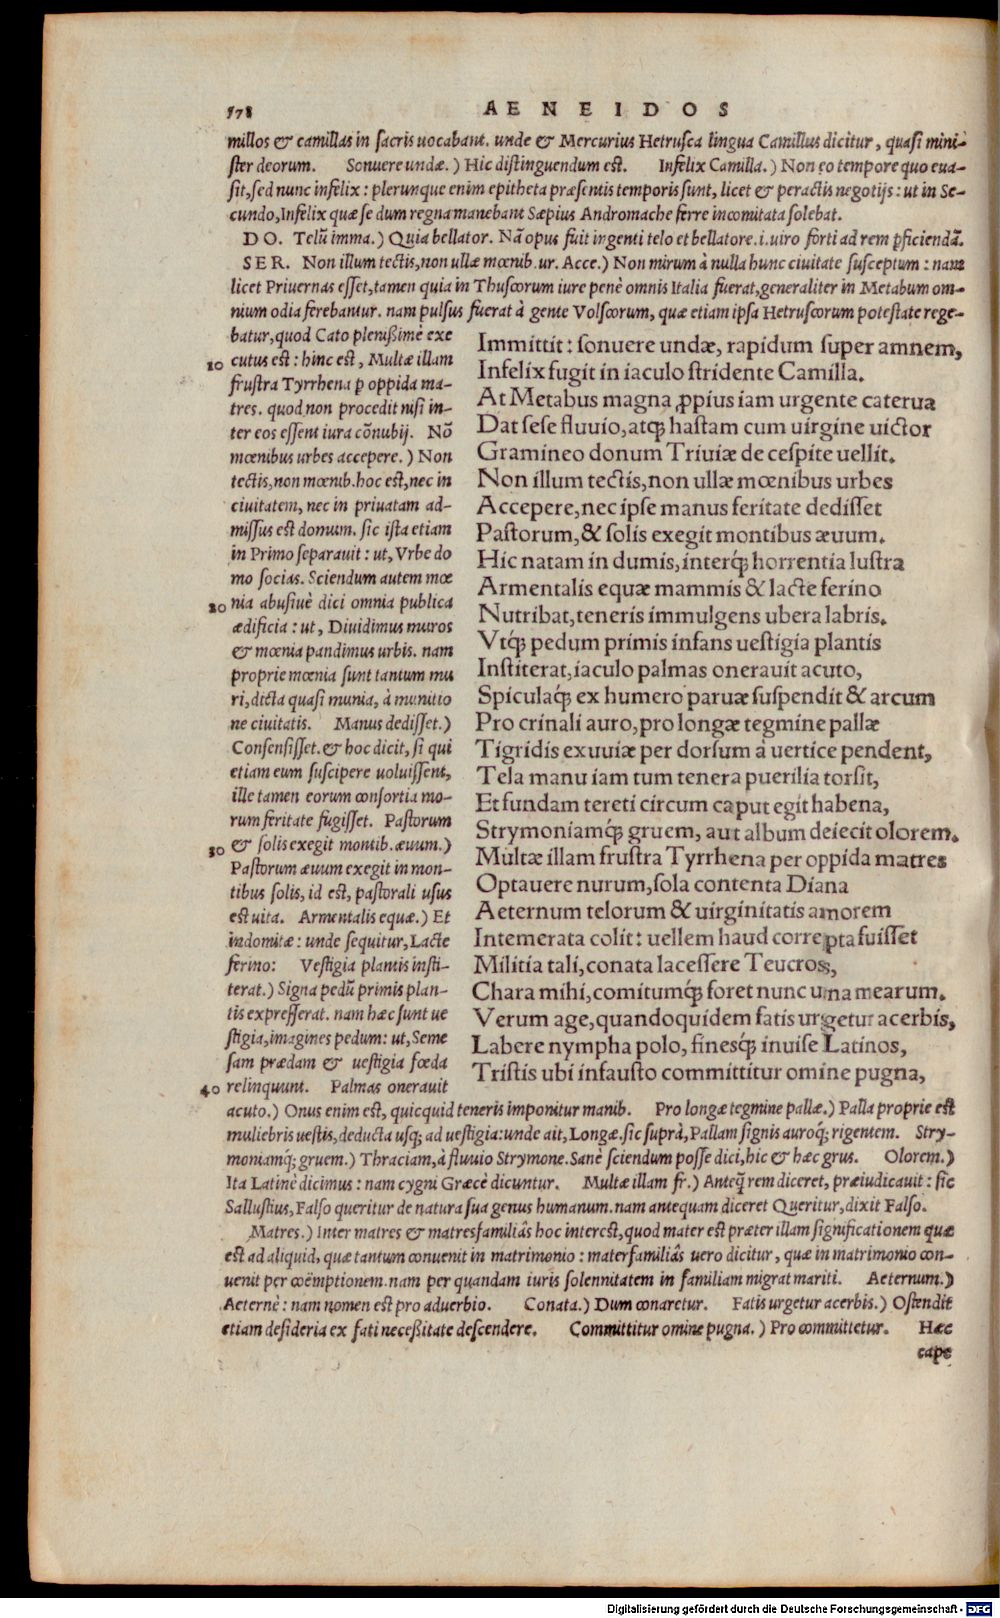 578
AENEIDOS
millos & camillas in sacris uocabant. unde & Mercurius Hetrusca lingua Camillus dicitur, quasi mini-
ster deorum. Sonuere undæ.) Hic distinguendum est. Infelix Camilla.) Non eo tempore quo eua-
sit, sed nunc infelix: plerunque enim epitheta præsentis temporis sunt, licet & peractis negotijs: ut in Se-
cundo, Infelix quæ se dum regna manebant Sæpius Andromache ferre incomitata solebat.
DO. Telũ imma.) Quia bellator. Nã opus fuit ingenti telo et bellatore.i.uiro forti ad rem ꝑficiendã.
SER. Non illum tectis, non ullæ mœnib. ur. Acce.) Non mirum à nulla hunc ciuitate susceptum: nam
licet Priuernas esset, tamen quia in Thuscorum iure penè omnis Italia fuerat, generaliter in Metabum om-
nium odia ferebantur. nam pulsus fuerat à gente Volscorum, quæ etiam ipsa Hetruscorum potestate rege-
batur, quod Cato plenißimè exe
10 cutus est: hinc est, Multæ illam
frustra Tyrrhena ꝑ oppida ma-
tres. quod non procedit nisi in-
ter eos essent iura cõnubij. Nõ
mœnibus urbes accepere.) Non
tectis, non mœnib. hoc est, nec in
ciuitatem, nec in priuatam ad-
missus est domum. sic ista etiam
in Primo separauit: ut, Vrbe do
mo socias. Sciendum autem mœ
20 nia abusiuè dici omnia publica
ædificia: ut, Diuidimus muros
& mœnia pandimus urbis. nam
proprie mœnia sunt tantum mu
ri, dicta quasi munia, à munitio
ne ciuitatis. Manus dedisset.)
Consensisset. & hoc dicit, si qui
etiam eum suscipere uoluissent,
ille tamen eorum consortia mo-
rum feritate fugisset. Pastorum
30 & solis exegit montib. æuum.)
Pastorum æuum exegit in mon-
tibus solis, id est, pastorali usus
est uita. Armentalis equæ.) Et
indomitæ: unde sequitur, Lacte
ferino: Vestigia plantis insti-
terat.) Signa pedũ primis plan-
tis expresserat. nam hæc sunt ue
stigia, imagines pedum: ut, Seme
sam prædam & uestigia fœda
40 relinquunt. Palmas onerauit
Immittit: sonuere undæ, rapidum super amnem,
Infelix fugit in iaculo stridente Camilla.
At Metabus magna ꝓpius iam urgente caterua
Dat sese fluuio, atq; hastam cum uirgine uictor
Gramineo donum Triuiæ de cespite uellit.
Non illum tectis, non ullæ mœnibus urbes
Accepere, nec ipse manus feritate dedisset
Pastorum, & solis exegit montibus æuum.
Hic natam in dumis, interq́; horrentia lustra
Armentalis equæ mammis & lacte ferino
Nutribat, teneris immulgens ubera labris.
Vtq́; pedum primis infans uestigia plantis
Institerat, iaculo palmas onerauit acuto,
Spiculaq́; ex humero paruæ suspendit & arcum
Pro crinali auro, pro longæ tegmine pallæ
Tigridis exuuiæ per dorsum à uertice pendent,
Tela manu iam tum tenera puerilia torsit,
Et fundam tereti circum caput egit habena,
Strymoniamq́; gruem, aut album deiecit olorem.
Multæ illam frustra Tyrrhena per oppida matres
Optauere nurum, sola contenta Diana
Aeternum telorum & uirginitatis amorem
Intemerata colit: uellem haud correpta fuisset
Militia tali, conata lacessere Teucros,
Chara mihi, comitumq́; foret nunc una mearum.
Verum age, quandoquidem fatis urgetur acerbis,
Labere nympha polo, finesq́; inuise Latinos,
Tristis ubi infausto committitur omine pugna,
acuto.) Onus enim est, quicquid teneris imponitur manib. Pro longæ tegmine pallæ.) Palla proprie est
muliebris uestis, deducta usq; ad uestigia: unde ait, Longæ. sic suprà, Pallam signis auroq́; rigentem. Stry-
moniamq́; gruem.) Thraciam, à fluuio Strymone. Sanè sciendum posse dici, hic & hæc grus. Olorem.)
Ita Latinè dicimus: nam cygni Græcè dicuntur. Multæ illam fr.) Anteq̃ rem diceret, præiudicauit: sic
Sallustius, Falso queritur de natura sua genus humanum. nam antequam diceret Queritur, dixit Falso.
Matres.) Inter matres & matresfamiliâs hoc interest, quod mater est præter illam significationem quæ
est ad aliquid, quæ tantum conuenit in matrimonio: materfamiliâs uero dicitur, quæ in matrimonio con-
uenit per coëmptionem. nam per quandam iuris solennitatem in familiam migrat mariti. Aeternum.)
Aeternè: nam nomen est pro aduerbio. Conata.) Dum conaretur. Fatis urgetur acerbis.) Ostendit
etiam desideria ex fati neceßitate descendere. Committitur omine pugna.) Pro committetur. Hæc
cape
Digitalisierung gefördert durch die Deutsche Forschungsgemeinschaft - DFG